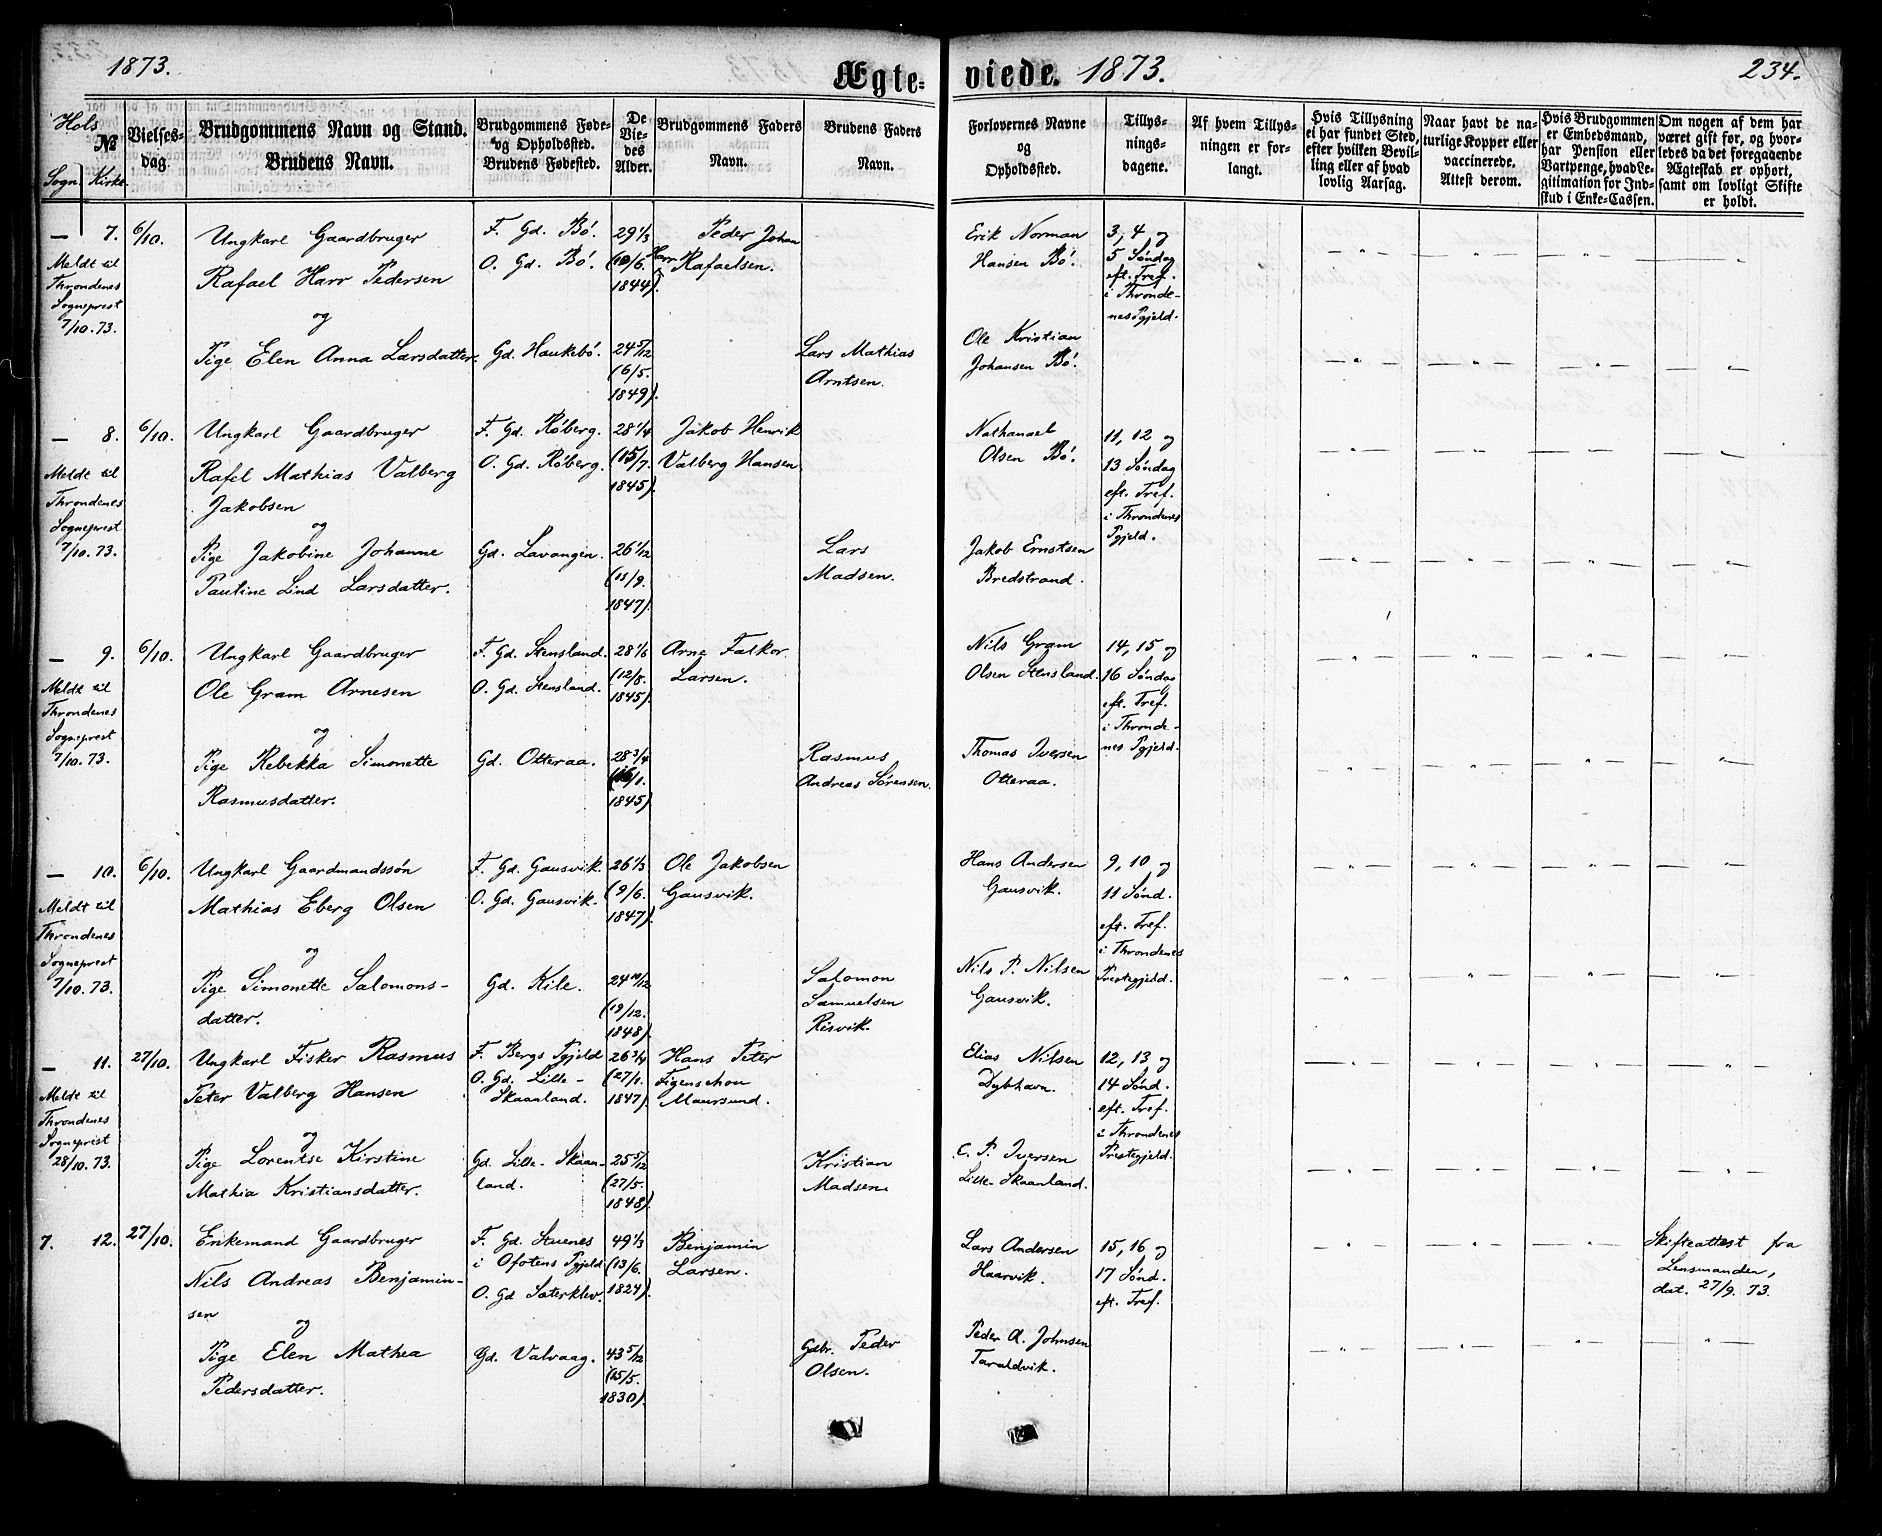 1873.
Ægte-
viede. 1873.
234.
Hols
№
Sogn Kirke
Vielses-
dag.
Brudgommens Navn og Stand.
Brudens Navn.
Brudgommens Føde-
og Opholdssted.
Brudens Fødested.
De
Vie-
des
Alder.
Brudgommens Faders
Navn.
Brudens Faders
Navn.
Forlovernes Navne
og
Opholdssted.
Tillys-
nings-
dagene.
Af hvem Tillys-
ningen er for-
langt.
Hvis Tillysning
ei har fundet Sted,
efter hvilken Bevil-
ling eller af hvad
lovlig Aarsag.
Naar havt de na-
turlige Kopper eller
vaccinerede.
Attest derom.
Hvis Brudgommen
er Embedsmand,
har Pension eller
Vartpenge, hvad Le-
gitimation for Ind-
skud i Enke-Cassen.
Om nogen af dem har
været gift før, og hvor-
ledes da det foregaaende
Ægteskab er ophørt,
samt om lovligt Skifte
er holdt.
— 7.
Meldt til
Throndenes
Sogneprest
7/10. 73.
6/10.
Ungkarl Gaardbruger
Rafael Harr Pedersen
og
Pige Elen Anna Larsdatter.
F. Gd. Bö.
O. Gd. Bö.
Gd. Haukebö.
29 1/3
(10/6.
1844).
24 5/12
(6/5.
1849).
Peder Johan
Harr Rafaelsen.
Lars Mathias
Arntsen.
Erik Norman
Hansen Bö.
Ole Kristian
Johansen Bö.
3, 4 og
5 Söndag
eft. Tref.
i Thronde-
nes Pgjeld.
— 8.
Meldt til
Throndenes
Sogneprest
7/10. 73.
6/10.
Ungkarl Gaardbruger
Rafel Mathias Valberg
Jakobsen
og
Pige Jakobine Johanne
Pauline Lind Larsdatter.
F. Gd. Röberg.
O. Gd. Röberg.
Gd. Lavangen.
28 1/4
(15/7.
1845).
26 1/12
(11/9.
1847).
Jakob Henrik
Valberg Hansen.
Lars
Madsen.
Nathanael
Olsen Bö.
Jakob Ernstsen
Bredstrand.
11, 12 og
13 Söndag
eft. Tref.
i Throndenes
Pgjeld.
— 9.
Meldt til
Throndenes
Sogneprest
7/10. 73.
6/10.
Ungkarl Gaardbruger
Ole Gram Arnesen
og
Pige Rebekka Simonette
Rasmusdatter.
F. Gd. Stensland.
O. Gd. Stensland.
Gd. Otteraa.
28 1/6
(12/8.
1845).
28 3/4
(16/1.
1845).
Arne Falkor
Larsen.
Rasmus
Andreas Sörensen.
Nils Gram
Olsen Stensland.
Thomas Iversen
Otteraa.
14, 15 og
16 Söndag
eft. Tref.
i Thronde-
nes Pgjeld.
— 10.
Meldt til
Throndenes
Sogneprest
7/10. 73.
6/10.
Ungkarl Gaardmandssön
Mathias Eberg Olsen
og
Pige Simonette Salomons-
datter.
F. Gd. Gausvik.
O. Gd. Gausvik.
Gd. Kile.
26 1/3
(9/6.
1847).
24 10/12
(19/12.
1848).
Ole Jakobsen
Gausvik.
Salomon
Samuelsen
Risvik.
Hans Andersen
Gausvik.
Nils P. Nilsen
Gausvik.
9, 10 og
11 Sönd.
eft. Tref.
i Throndenes
Prestegjeld.
— 11.
Meldt til
Throndenes
Sogneprest
28/10. 73.
27/10.
Ungkarl Fisker Rasmus
Peter Valberg Hansen
og
Pige Lorentse Kirstine
Mathia Kristiansdatter.
F. Bergs Pgjeld
O. Gd. Lille-
Skaanland.
Gd. Lille-Skaan-
land.
26 3/4
(27/1.
1847).
25 5/12
(27/5.
1848).
Hans Peter
Figenschou
Maursund.
Kristian
Madsen.
Elias Nilsen
Dybhavn.
C. P. Iversen
Lille-Skaanland.
12, 13 og
14 Sönd.
eft. Tref.
i Throndenes
Prestegjeld.
7. 12.
27/10.
Enkemand Gaardbruger
Nils Andreas Benjamin-
sen
og
Pige Elen Mathea
Pedersdatter.
F. Gd. Stuenes
i Ofotens Pgjeld
O. Gd Sæterklev.
Gd. Valvaag.
49 1/3
(13/6.
1824).
43 5/12
(15/5.
1830).
Benjamin
Larsen.
Gdbr. Peder
Olsen.
Lars Andersen
Haarvik.
Peder A. Johnsen
Taraldvik.
15, 16 og
17 Sönd.
eft. Tref.
Skifteattest fra
Lensmanden,
dat. 27/9. 73.